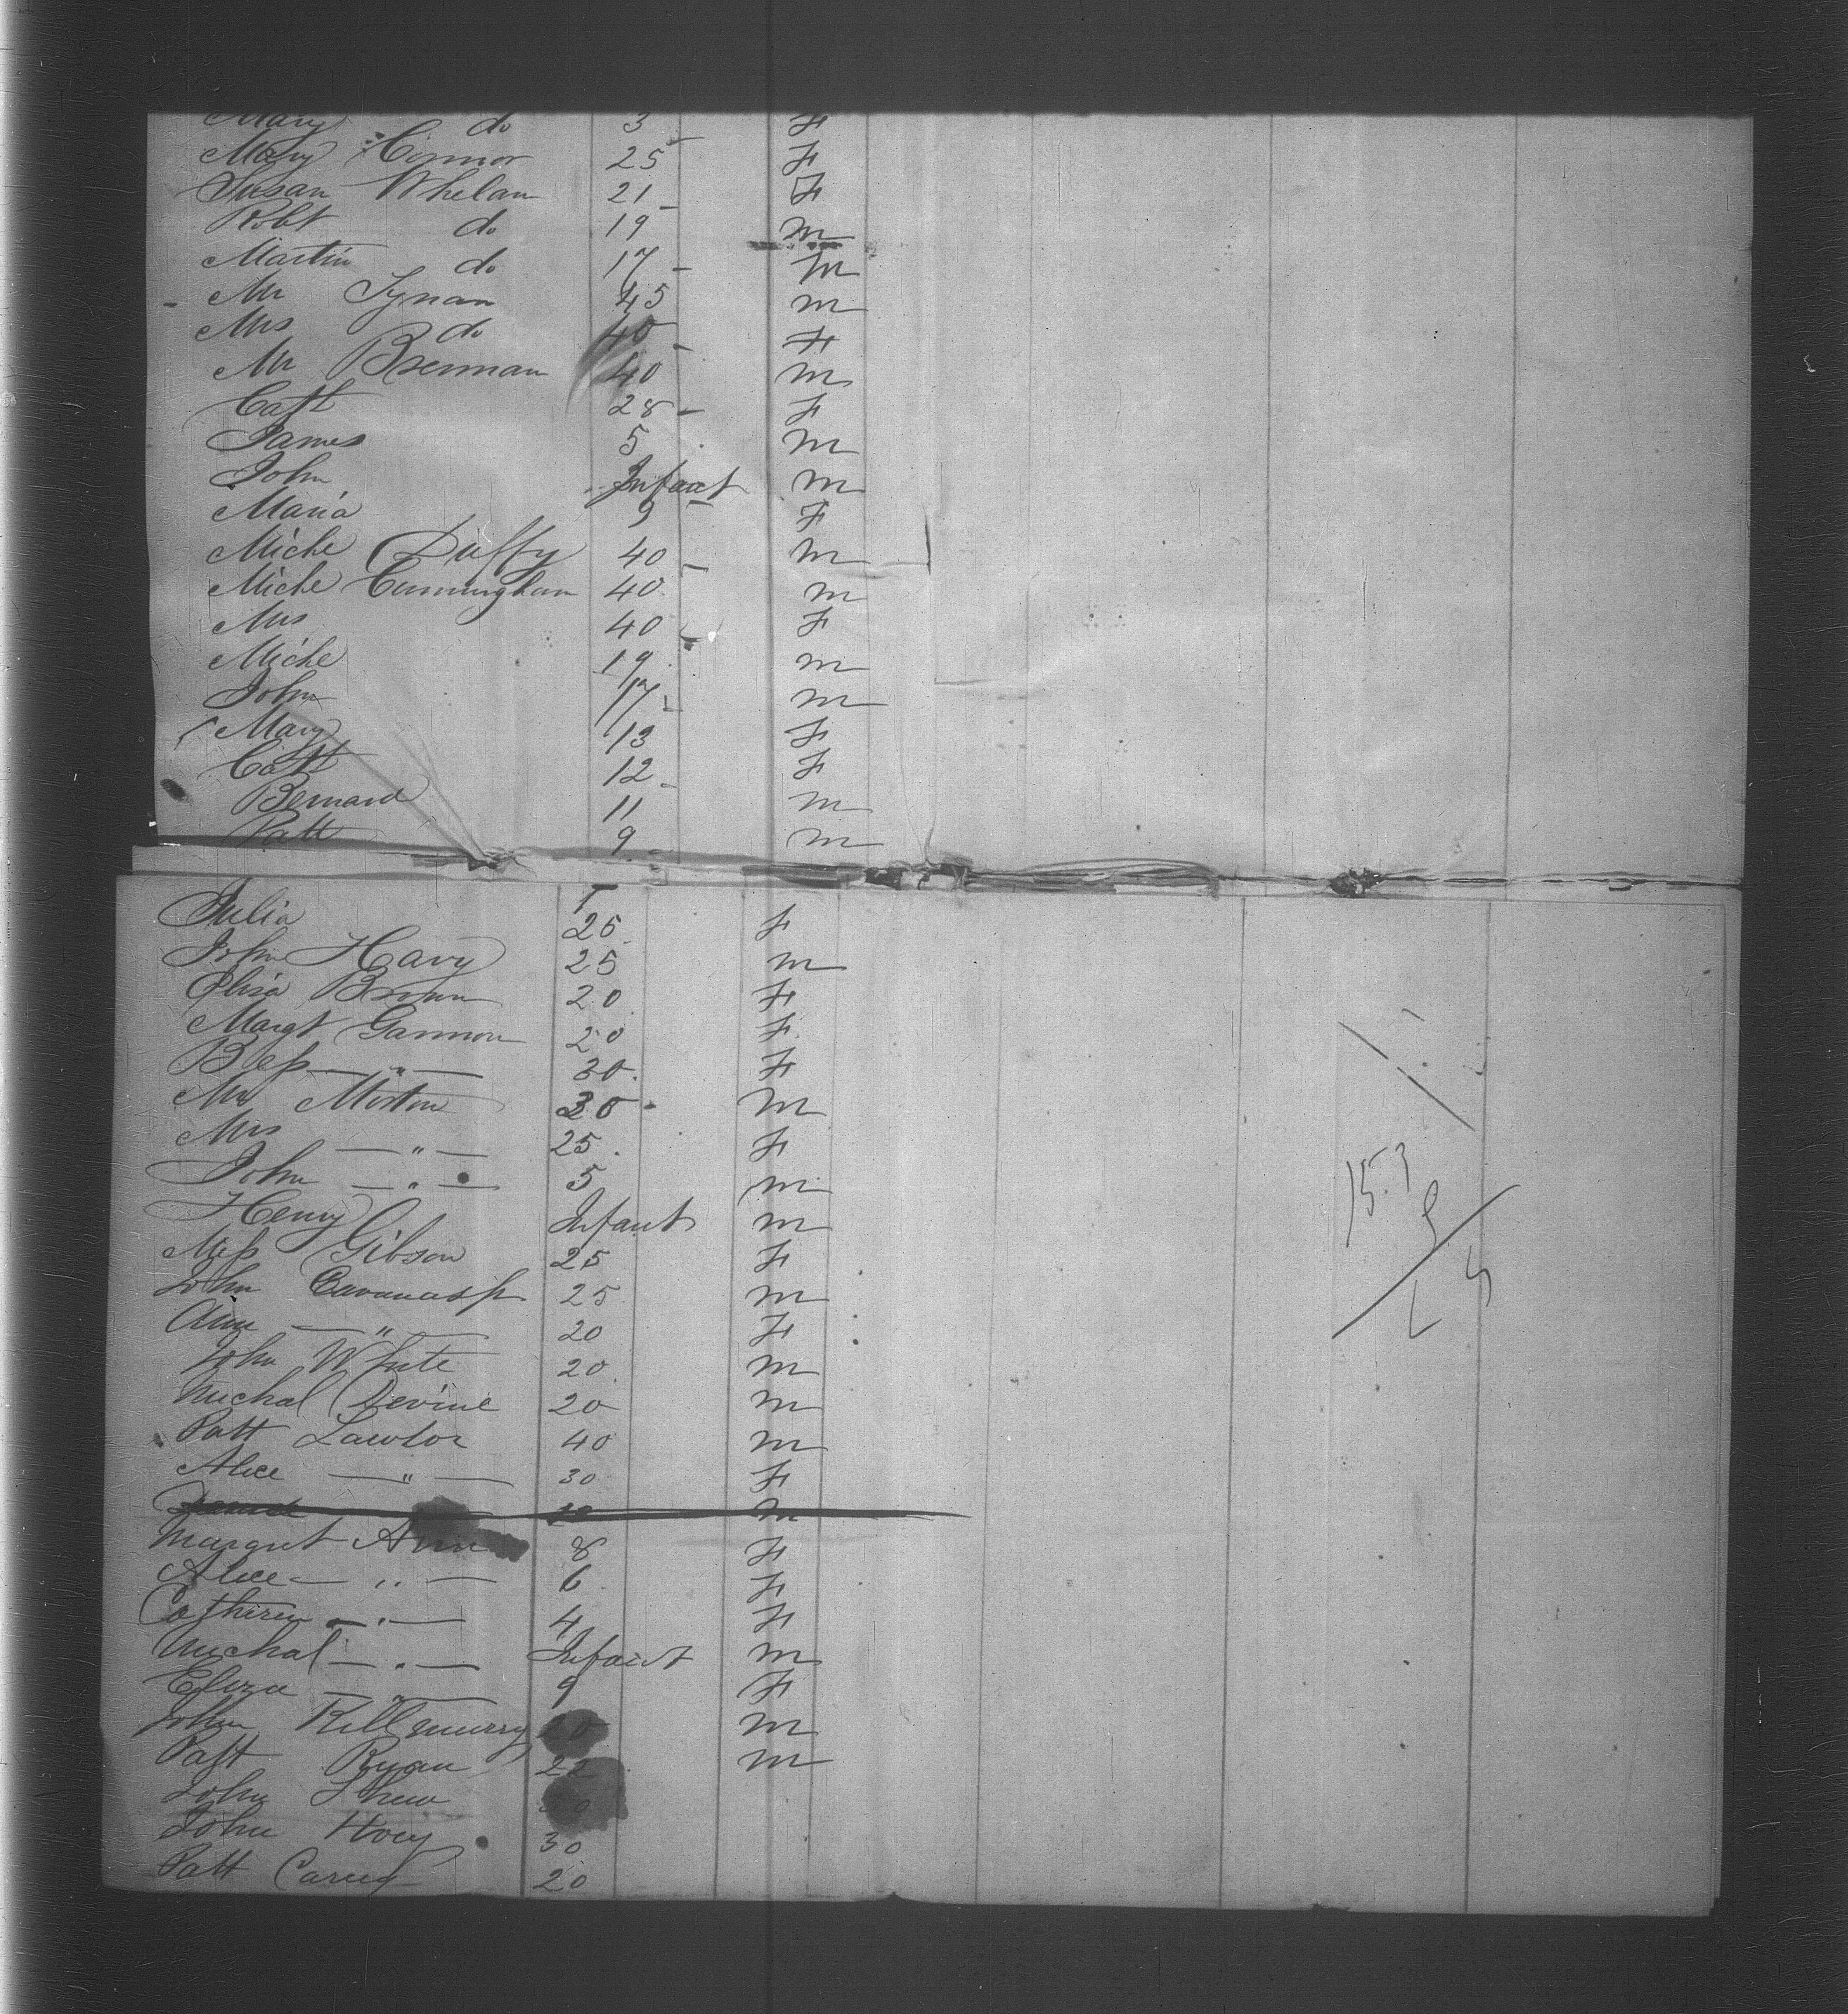 Mary do 3 F
Mary Connor 25 F
Susan Whelan 21 F
Robt do 19 m
Martin do 17 m
Mr Tynan 45 m
Mrs do 40 F
Mr Brennan 40 m
Cath 28 F
James 5 m
John Infant m
Maria 9 F
Miche Duffy 40 m
Miche Cunningham 40 m
Mrs 40 F
Miche 19 m
John 17 m
Mary 13 F
Cath 12 F
Bernard 11 m
Patt 9 m
Julia F
John Havy 25 m
Eliza Brown 20 F
Margt Gannon 20 F
Bess " 30 F
Mr Morton 30 m
Mrs " 25 F
John " 5 m
Henry Infant m
Miss Gibson 25 F
John Cavanagh 25 m
Ann " 20 F
John White 20 m
Michal Devine 20 m
Patt Lawlor 40 m
Alice " 30 F
m
Margret Ann 8 F
Alice " 6 F
Catherin " 4 F
Michal " Infant m
Eliza " 9 F
John Killmurry m
Patt Ryan 22 m
John
John Hoey 30
Patt Carey 20
153